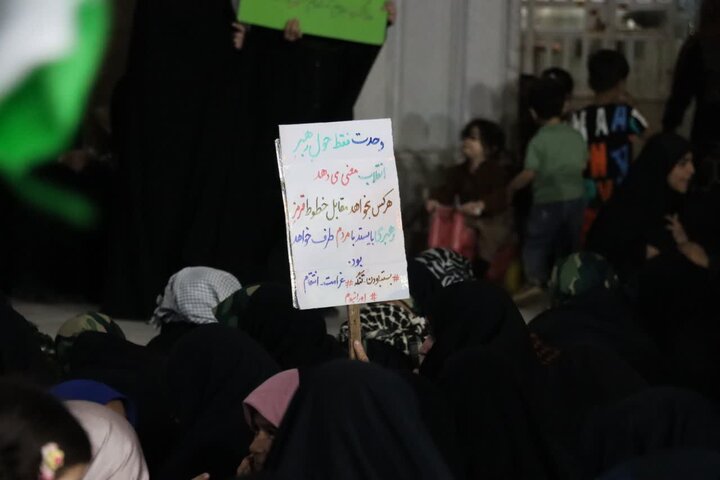 وحدت فقط حول رهبر
انقلاب معنی می دهد
هرکس بخواهد مقابل خطوط قرمز
رهبری بایستد با مردم طرف خواهد
بود.
#بسته‌بودن_تنگه #غرامت_انتقام
#
MAN